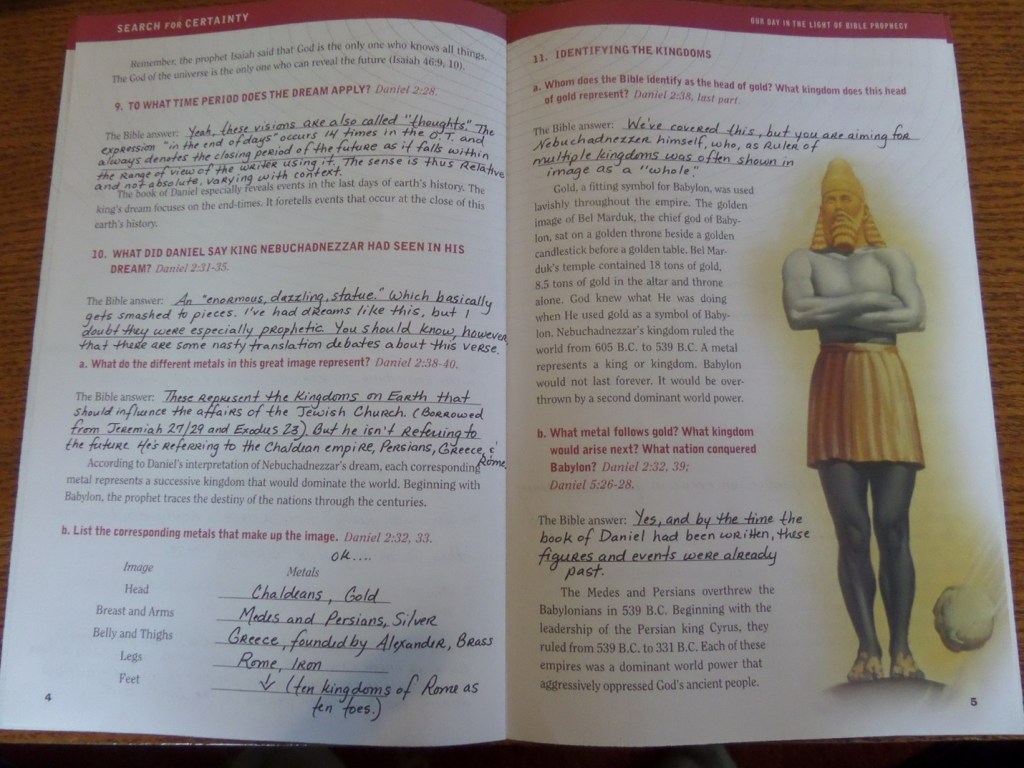 SEARCH FOR CERTAINTY
Remember, the prophet Isaiah said that God is the only one who knows all things.
The God of the universe is the only one who can reveal the future (Isaiah 46:9, 10).
9. TO WHAT TIME PERIOD DOES THE DREAM APPLY? Daniel 2:28.
The Bible answer: Yeah, these visions are also called "thoughts". The
expression "in the end of days" occurs 14 times in the O.T. and
always denotes the closing period of the future as it falls within
the range of view of the writer using it. The sense is thus relative
and not absolute, varying with context.
The book of Daniel especially reveals events in the last days of earth's history. The
king's dream focuses on the end-times. It foretells events that occur at the close of this
earth's history.
10. WHAT DID DANIEL SAY KING NEBUCHADNEZZAR HAD SEEN IN HIS
DREAM? Daniel 2:31-35.
The Bible answer: An "enormous, dazzling, statue." Which basically
gets smashed to pieces. I've had dreams like this, but I
doubt they were especially prophetic. You should know, however,
that there are some nasty translation debates about this verse.
a. What do the different metals in this great image represent? Daniel 2:38-40.
The Bible answer: These represent the Kingdoms on Earth that
should influence the affairs of the Jewish Church. (Borrowed
from Jeremiah 27/29 and Exodus 23). But he isn't referring to
the future. He's referring to the Chaldean empire, Persians, Greece, &
Rome.
According to Daniel's interpretation of Nebuchadnezzar's dream, each corresponding
metal represents a successive kingdom that would dominate the world. Beginning with
Babylon, the prophet traces the destiny of the nations through the centuries.
b. List the corresponding metals that make up the image. Daniel 2:32, 33.
OK....
Image Metals
Head Chaldeans, Gold
Breast and Arms Medes and Persians, Silver
Belly and Thighs Greece, founded by Alexander, Brass
Legs Rome, Iron
Feet ↓ (ten kingdoms of Rome as
ten toes.)
4
OUR DAY IN THE LIGHT OF BIBLE PROPHECY
11. IDENTIFYING THE KINGDOMS
a. Whom does the Bible identify as the head of gold? What kingdom does this head
of gold represent? Daniel 2:38, last part.
The Bible answer: We've covered this, but you are aiming for
Nebuchadnezzer himself, who, as ruler of
multiple kingdoms was often shown in
image as a "whole".
Gold, a fitting symbol for Babylon, was used
lavishly throughout the empire. The golden
image of Bel Marduk, the chief god of Baby-
lon, sat on a golden throne beside a golden
candlestick before a golden table. Bel Mar-
duk's temple contained 18 tons of gold,
8.5 tons of gold in the altar and throne
alone. God knew what He was doing
when He used gold as a symbol of Baby-
lon. Nebuchadnezzar's kingdom ruled the
world from 605 B.C. to 539 B.C. A metal
represents a king or kingdom. Babylon
would not last forever. It would be over-
thrown by a second dominant world power.
b. What metal follows gold? What kingdom
would arise next? What nation conquered
Babylon? Daniel 2:32, 39;
Daniel 5:26-28.
The Bible answer: Yes, and by the time the
book of Daniel had been written, these
figures and events were already
past.
The Medes and Persians overthrew the
Babylonians in 539 B.C. Beginning with the
leadership of the Persian king Cyrus, they
ruled from 539 B.C. to 331 B.C. Each of these
empires was a dominant world power that
aggressively oppressed God's ancient people.
5